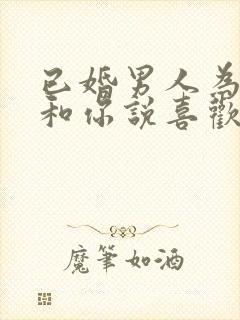 已婚男人為
和你說喜歡
魔筆如酒